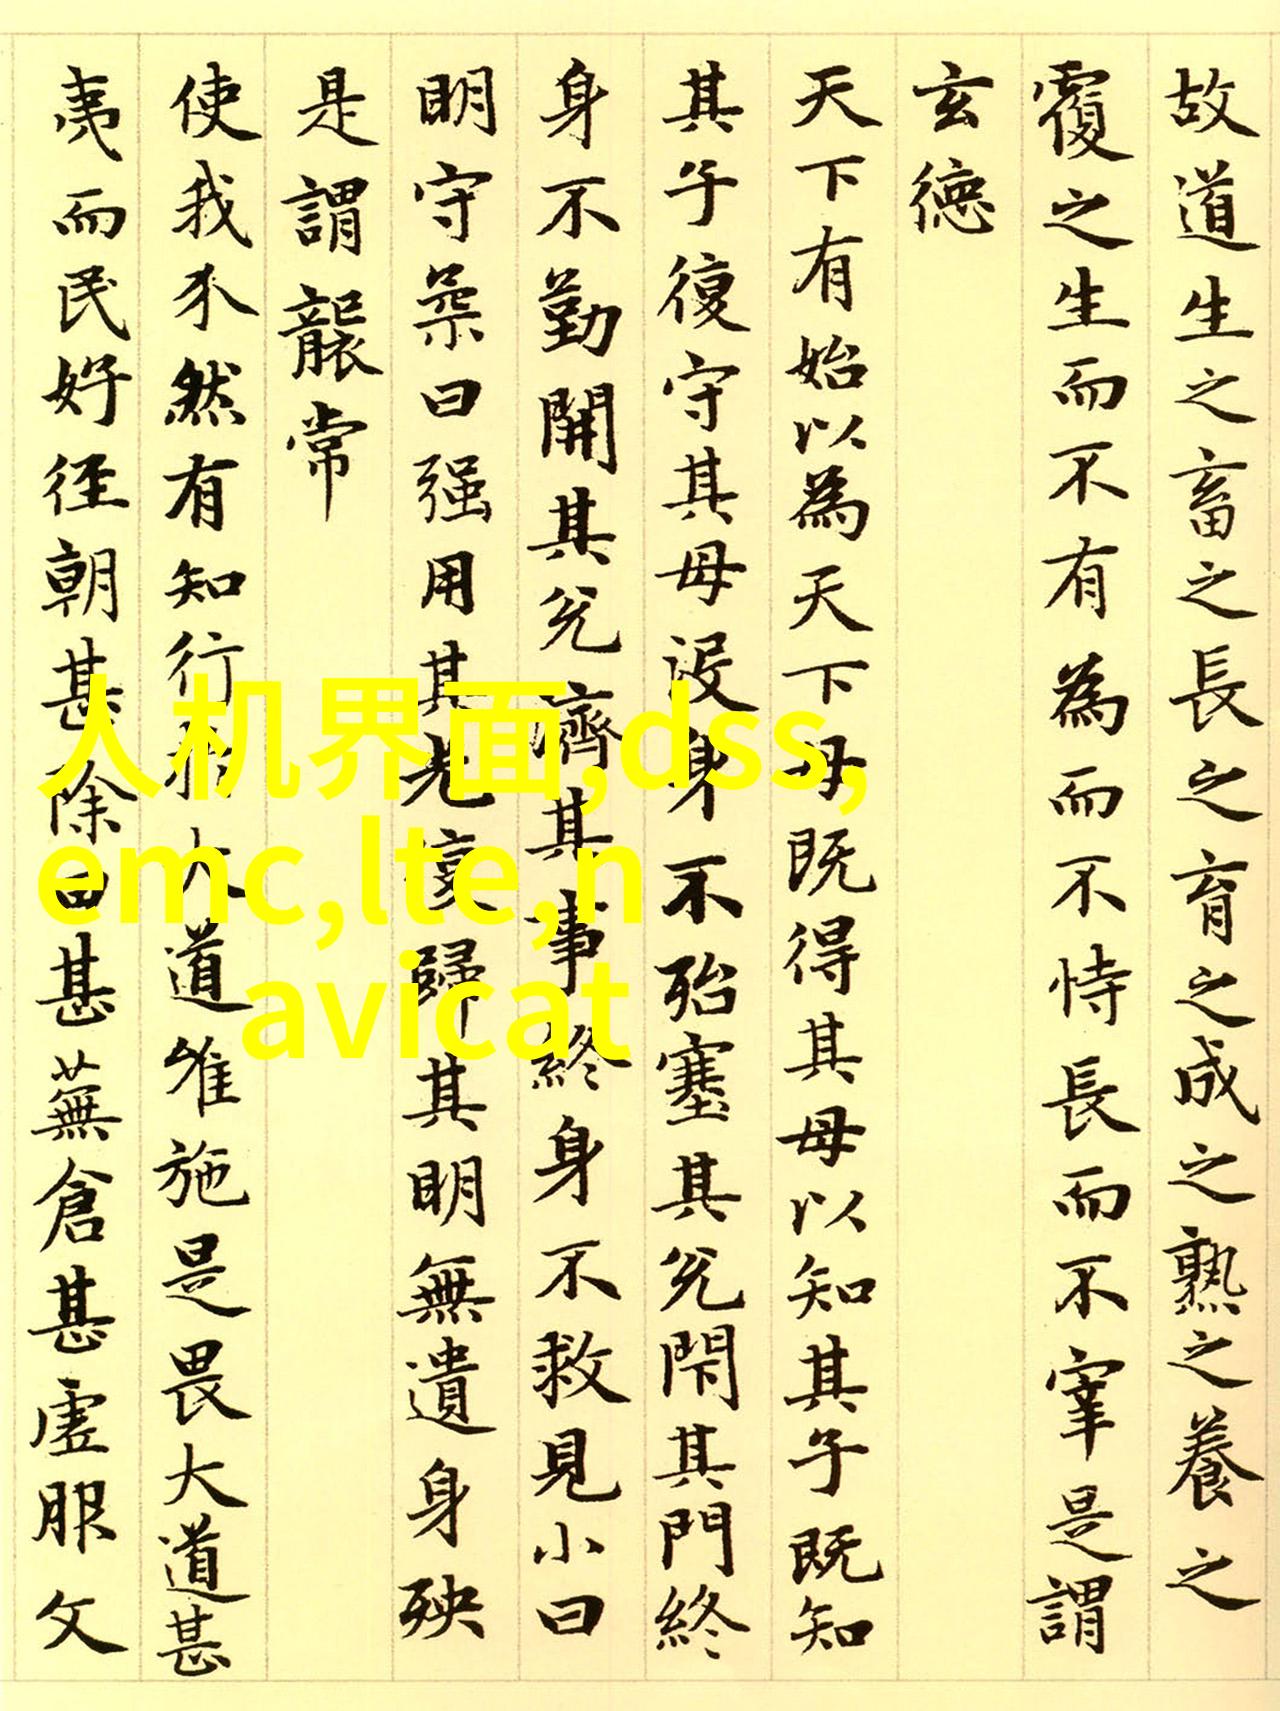 故道生之畜之長之育之成之熟之養之
覆之生而不有為而不恃長而不宰是謂
玄德
天下有始以為天下母既得其母以知其子既知
其子復守其母没身不殆塞其兑閇其門終
身不勤開其兑濟其事終身不救見小曰
明守柔曰强用其光復歸其明無遺身殃
是謂襲常
使我介然有知行於大道唯施是畏大道甚
夷而民好徑朝甚除田甚蕪倉甚虛服文
人机界面,dss,
emc,lte,n
avicat